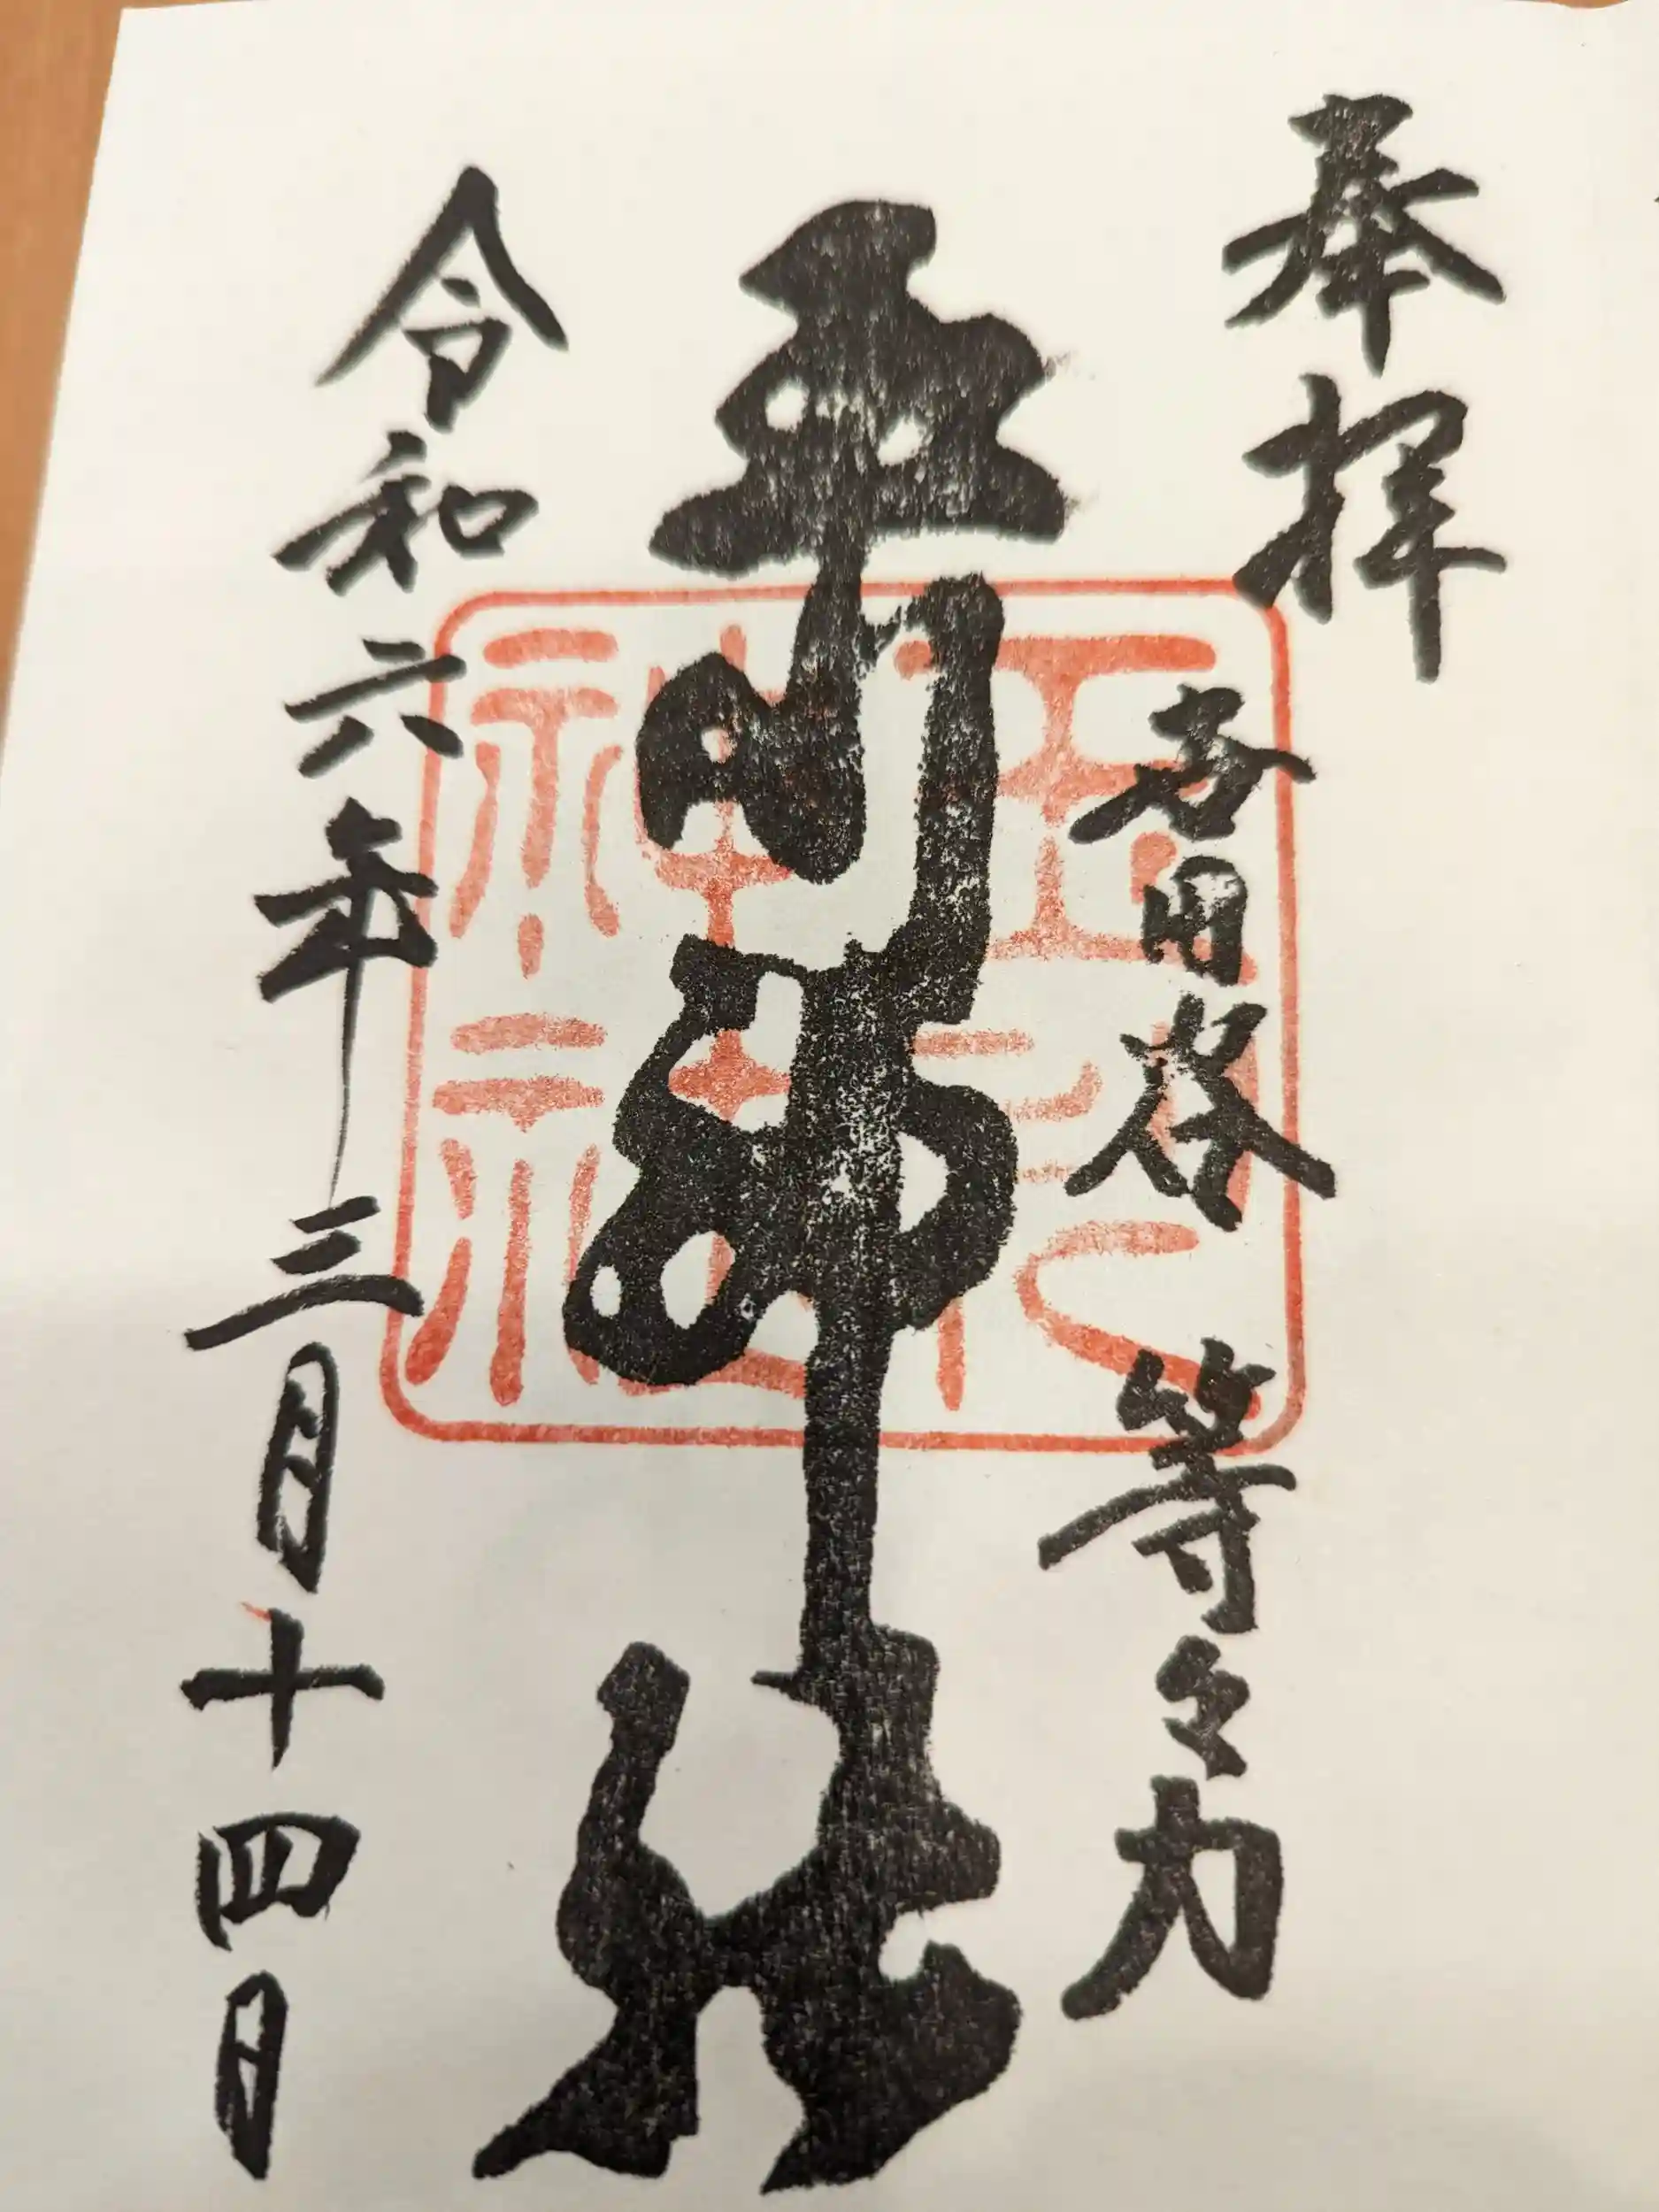 奉拝
世田谷 等々力
玉川神社
神社
令和六年三月十四日